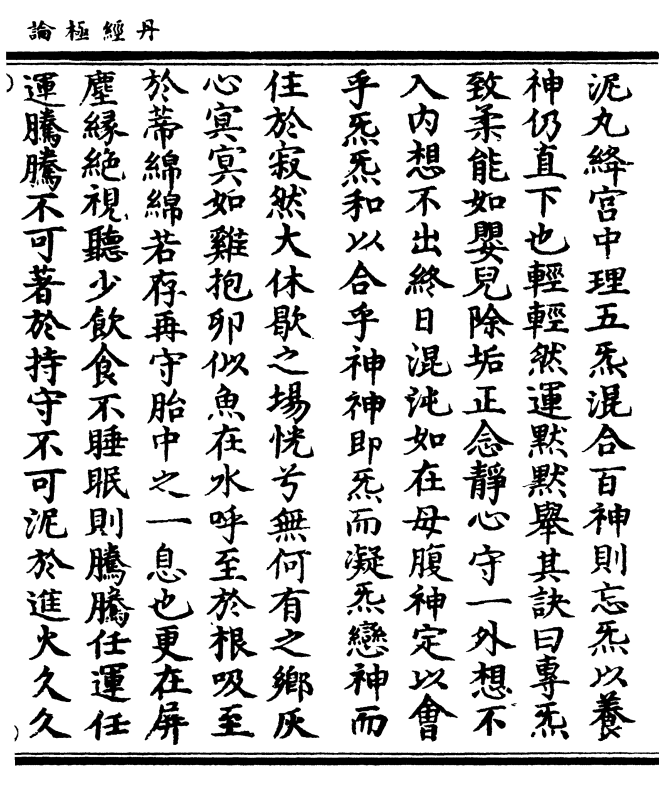 丹經極論
泥丸絳宮中理五炁混合百神則忘炁以養
神仍直下也輕輕然運默默舉其訣曰專炁
致柔能如嬰兒除垢正念靜心守一外想不
入內想不出終日混沌如在母腹神定以會
乎炁炁和以合乎神神即炁而凝炁戀神而
住於寂然大休歇之場恍兮無何有之鄉灰
心冥冥如雞抱卵似魚在水呼至於根吸至
於蒂綿綿若存再守胎中之一息也更在屏
塵緣絕視聽少飲食不睡眠則騰騰任運任
運騰騰不可著於持守不可泥於進火久久